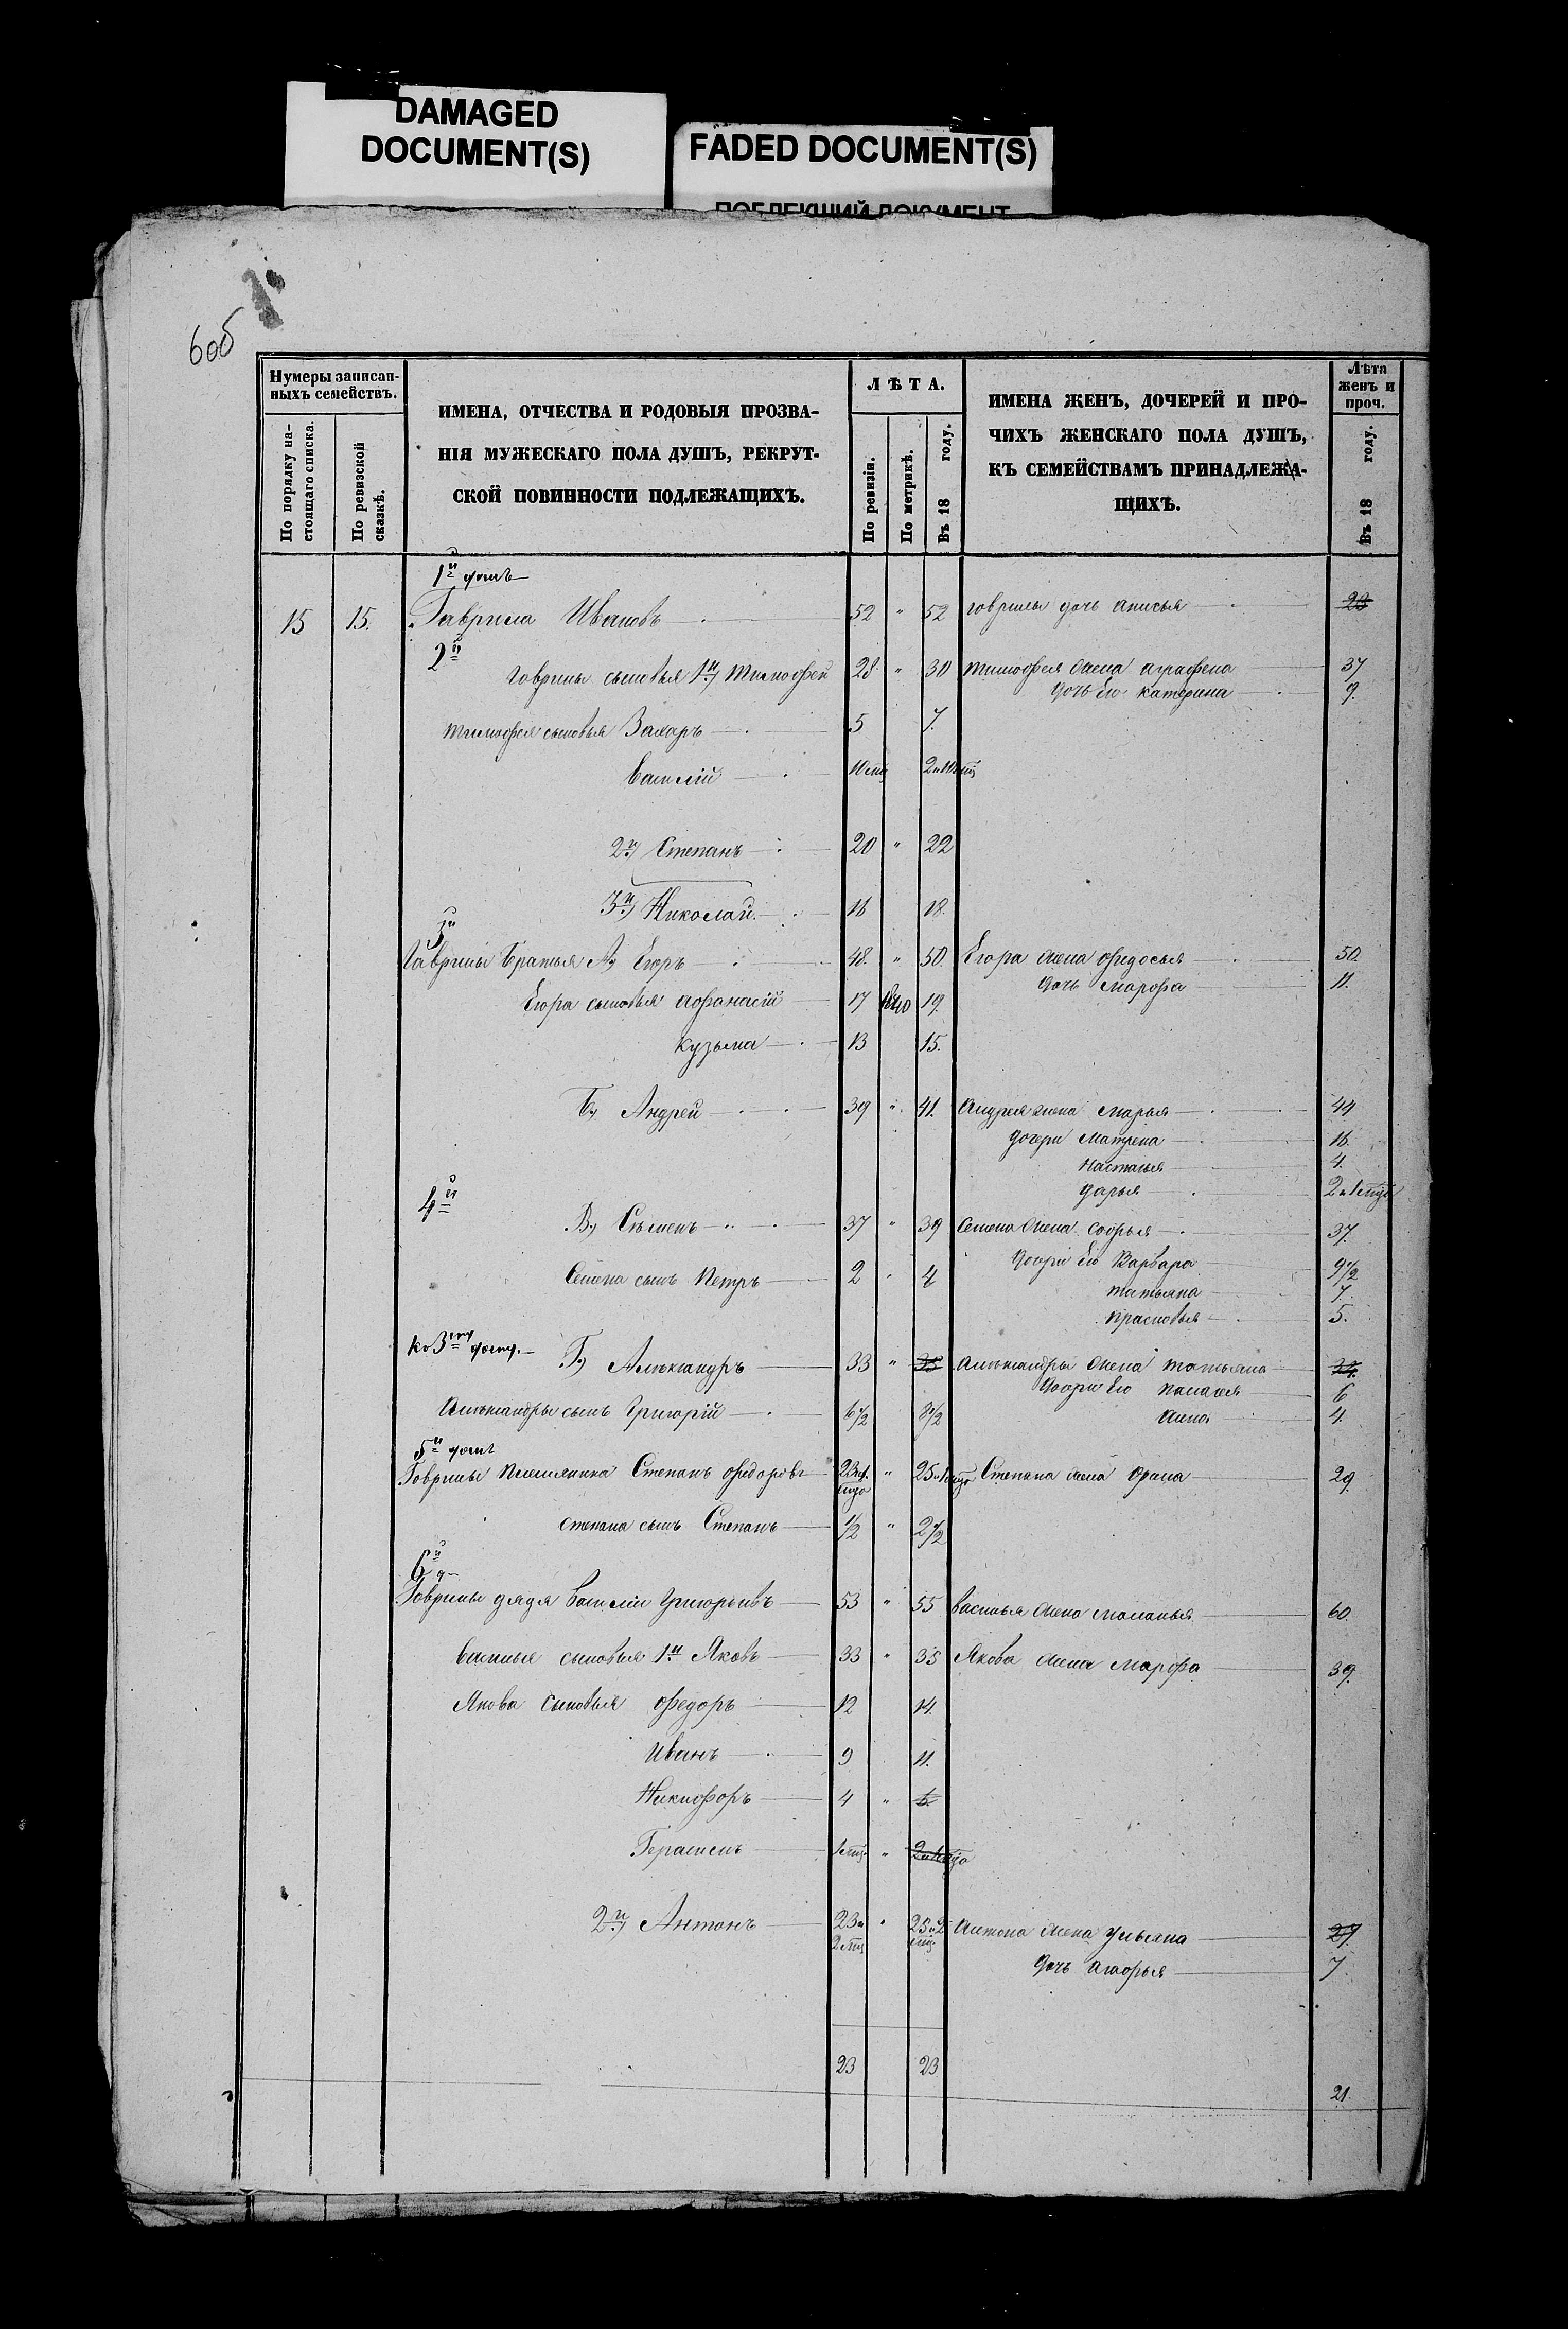 DAMAGED
DOCUMENT(S)
FADED DOCUMENT(S)
ПОБЛЕКШИЙ ДОКУМЕНТ
6об
Нумеры записан-
ныхъ семействъ.
По порядку на-
стоящаго списка.
По ревизской
сказкѣ.
ИМЕНА, ОТЧЕСТВА И РОДОВЫЯ ПРОЗВА-
НІЯ МУЖЕСКАГО ПОЛА ДУШЪ, РЕКРУТ-
СКОЙ ПОВИННОСТИ ПОДЛЕЖАЩИХЪ.
ЛѢТА.
По ревизіи.
По метрикѣ.
Въ 18 году.
ИМЕНА ЖЕНЪ, ДОЧЕРЕЙ И ПРО-
ЧИХЪ ЖЕНСКАГО ПОЛА ДУШЪ,
КЪ СЕМЕЙСТВАМЪ ПРИНАДЛЕЖА-
ЩИХЪ.
Лѣта
женъ и
проч.
Въ 18 году.
1й домъ
15 15. Гаврила Ивановъ 52 " 52 говрилы дочь анисья 23
2й
говрилы сыновья 1й) тимофей 28 " 30 тимофея жена аграфена 37
дочь Его катерина 9.
тимофея сыновья Захаръ 5 7.
василій 10 мцъ 2 и 10 мцъ
2й) Степанъ 20 " 22
3й) Николай 16 18.
3й
Гаврилы братья А) Егоръ 48. " 50. Егора жена федосья 50.
дочь марфа 11.
Егора сыновья афанасій 17 1840 19.
кузьма 13 15.
Б) Андрей 39 " 41. андрея жена марья 44
дочери матрена 16.
настасья 4.
дарья 2 и 1 мцъ
4й
В) Сѣменъ 37 " 39 семена жена софья 37.
дочри Его Варвара 9 1/2
Семена сынъ Петръ 2 " 4
татьяна 7.
прасковья 5.
ко 3му дому.
Г) Алѣксандръ 33 " 35 алѣксандры жена татьяна 34
дочри Его палагея 6
Алѣксандры сынъ Григорій 6 1/2 8 1/2
анна 4.
5й домъ
Говрилы племянникъ Степанъ федоровъ 23 и 1 мцъ " 25 и 1 мцъ Степана жена 29.
степана сынъ Степанъ 1/2 " 2 1/2
6й д
Говрилы дядя василій Григорьевъ 53 " 55 василья жена маланья 60.
василья сыновья 1й Яковъ 33 " 35 Якова жена марфа 39.
Якова сыновья федоръ 12 14.
иванъ 9 11.
Никифоръ 4 " 6
Герасимъ 1 мцъ " 2 и 1 мцъ
2й) Антонъ 23 и 2 мцъ " 25 и 2 мцъ антона жена ульяна 27.
дочь 7
23 23
21.